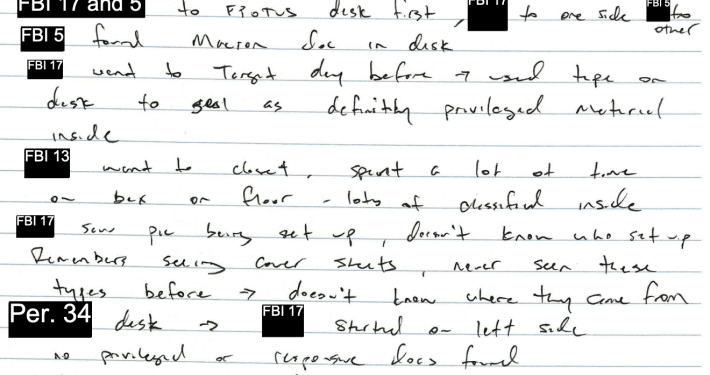 FBI 17 and 5 to FPOTUS desk first, FBI 17 to one side FBI 5 to other
FBI 5 found Macron doc in desk
FBI 17 went to Target day before → used tape on
desk to seal as definitely privileged material
inside
FBI 13 went to closet, spent a lot of time
on box on floor - lots of classified inside
FBI 17 saw pic being set up, doesn't know who set up
Remembers seeing cover sheets, never seen these
types before → doesn't know where they came from
Per. 34 desk → FBI 17 started on left side
no privileged or responsive docs found